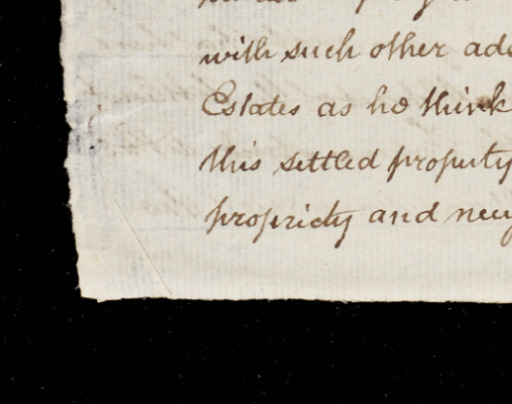 with such other
Estates as he think
this settled property
propriety and